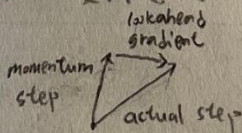 lookahead
gradient
momentum
step
actual step